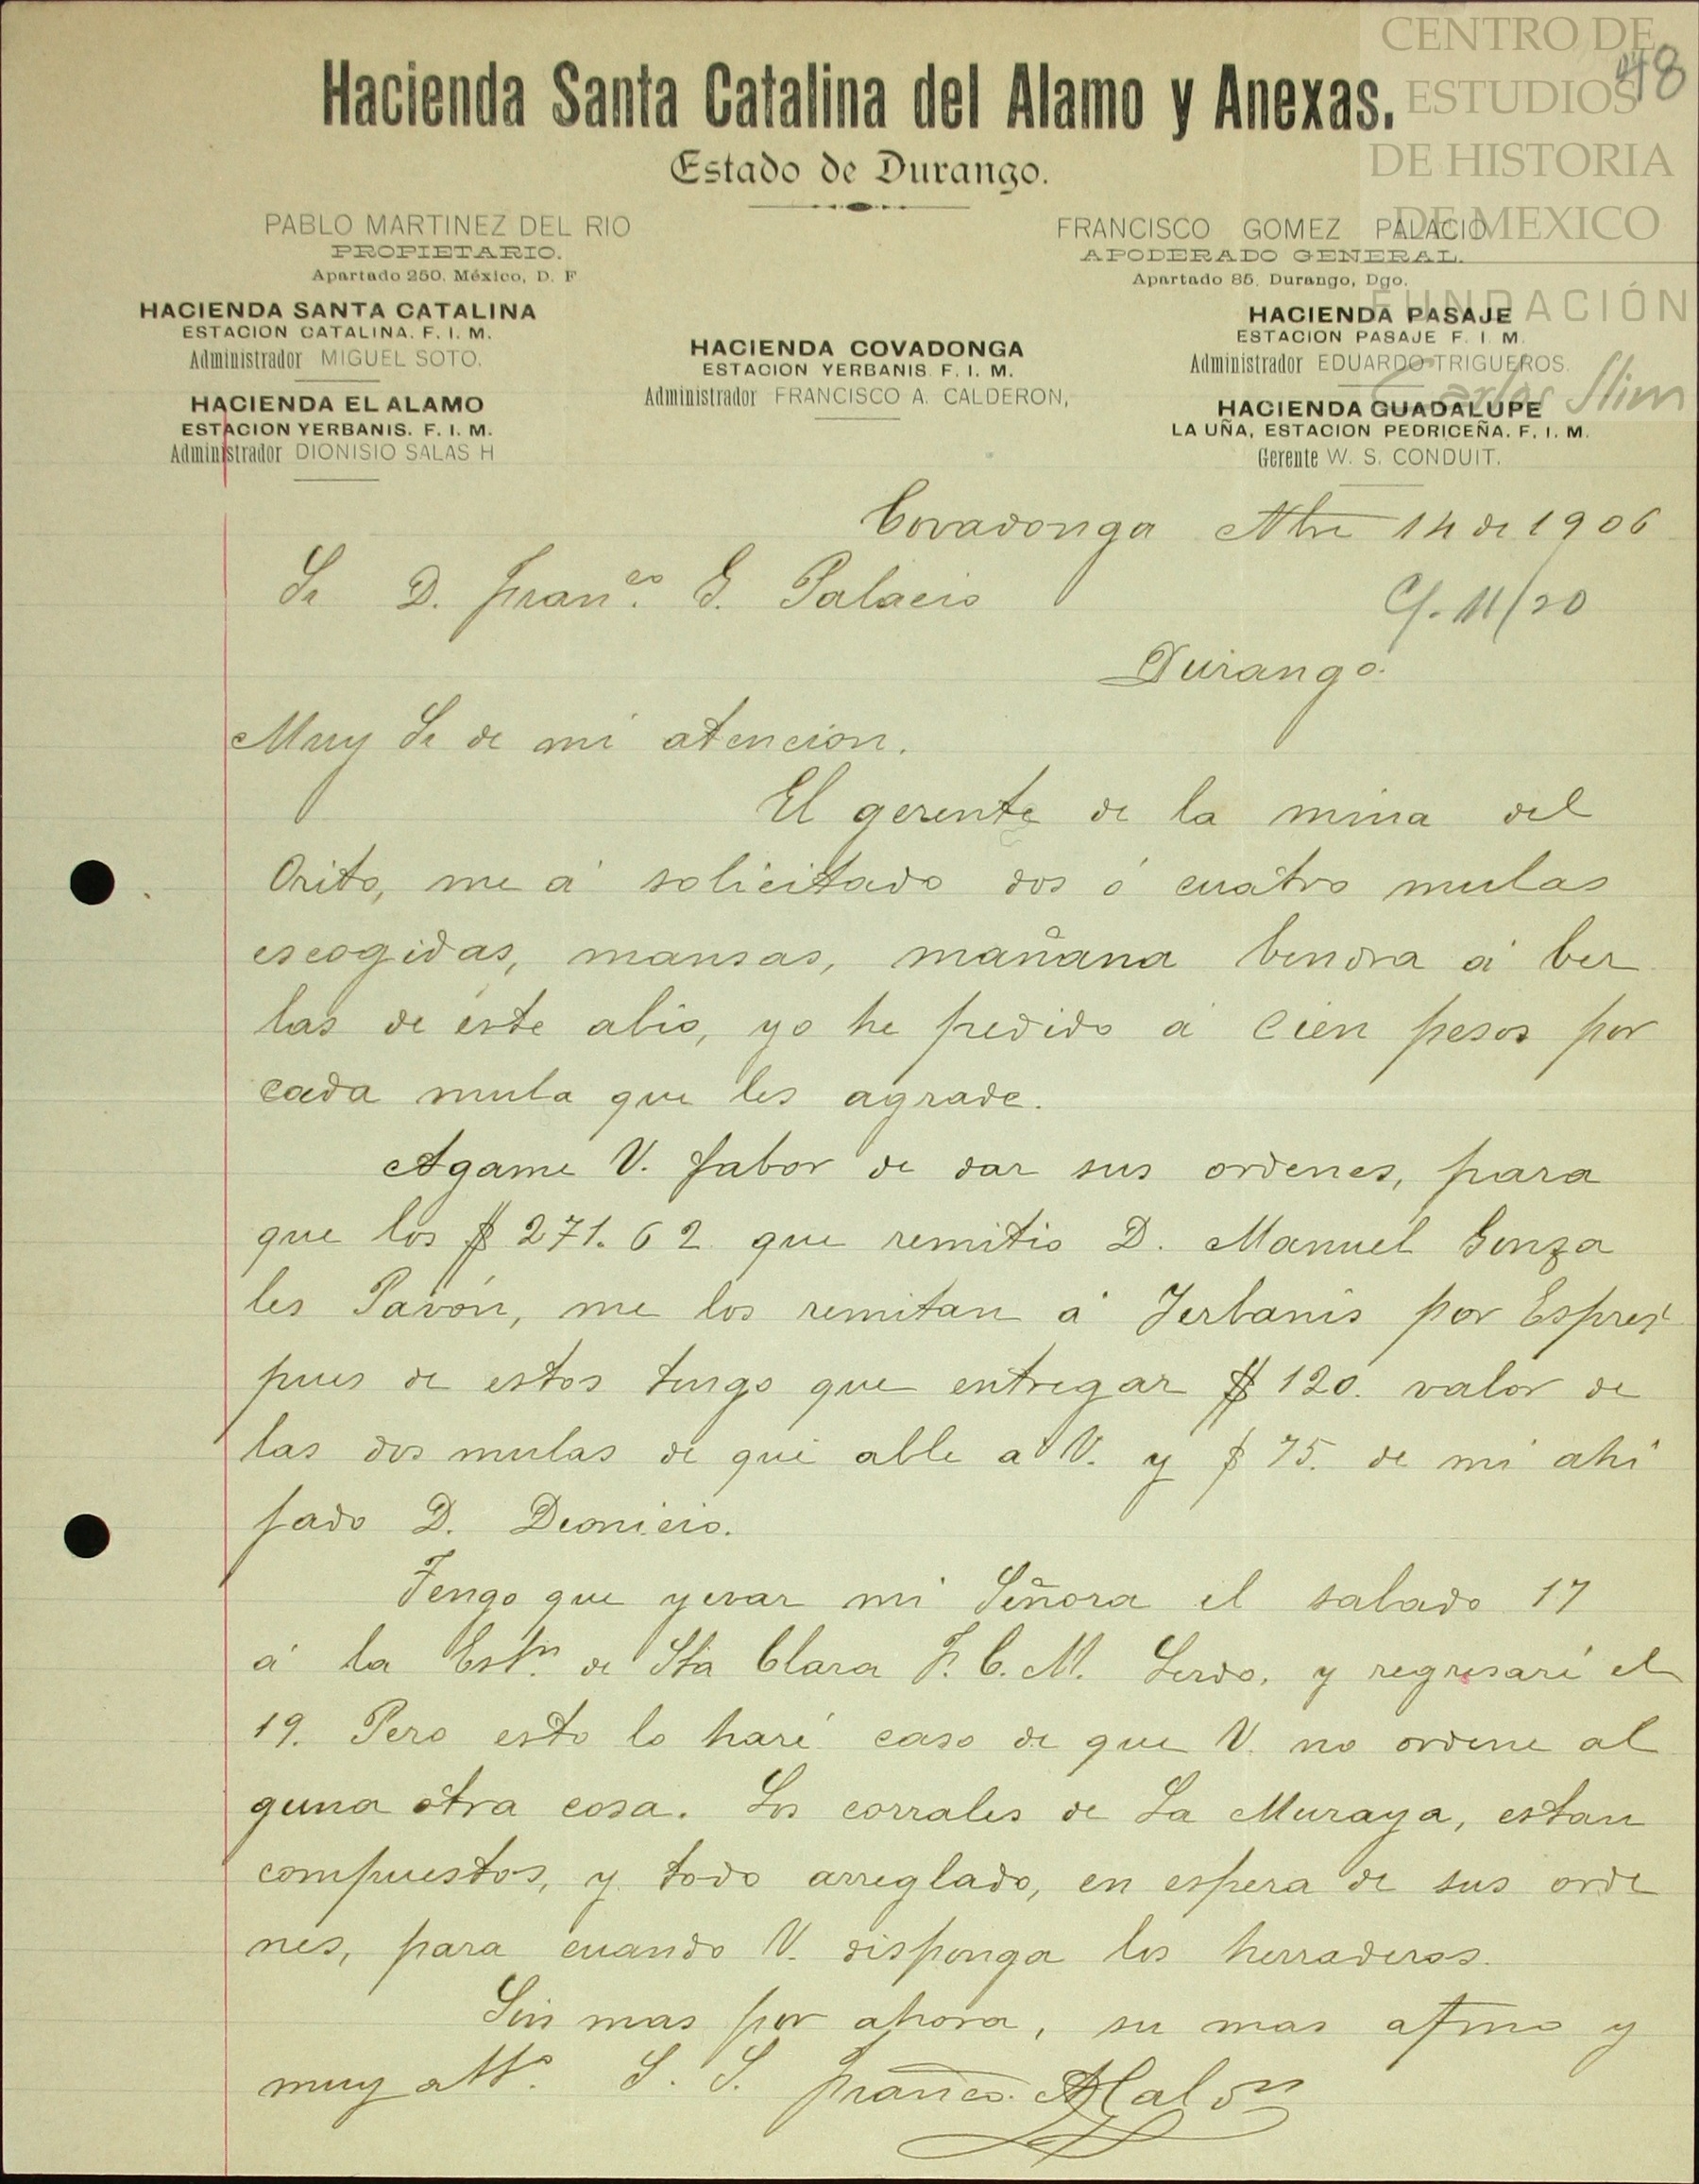 CENTRO DE
ESTUDIOS
DE HISTORIA
DE MEXICO
FUNDACIÓN
Carlos Slim
48
Hacienda Santa Catalina del Alamo y Anexas.
Estado de Durango.
PABLO MARTINEZ DEL RIO
PROPIETARIO.
Apartado 250, México, D. F
FRANCISCO GOMEZ PALACIO
APODERADO GENERAL.
Apartado 85, Durango, Dgo.
HACIENDA SANTA CATALINA
ESTACION CATALINA. F. I. M.
Administrador MIGUEL SOTO.
HACIENDA EL ALAMO
ESTACION YERBANIS. F. I. M.
Administrador DIONISIO SALAS H
HACIENDA COVADONGA
ESTACION YERBANIS F. I. M.
Administrador FRANCISCO A. CALDERON,
HACIENDA PASAJE
ESTACION PASAJE F. I. M.
Administrador EDUARDO TRIGUEROS.
HACIENDA GUADALUPE
LA UÑA, ESTACION PEDRICEÑA. F. I. M.
Gerente W. S. CONDUIT.
Covadonga Nbre 14 de 1906
Sr D. Fran.co G. Palacio
C/. 11/20
Durango.
Muy Sr de mi atencion.
El gerente de la mina del
Orito, me á solicitado dos ó cuatro mulas
escogidas, mansas, mañana bendra á ber
las de este abio, yo he pedido á cien pesos por
cada mula que les agrade.
Agame V. fabor de dar sus ordenes, para
que los $271.62 que remitio D. Manuel Gonza
les Pavón, me los remitan á Jerbanis por Espres
pues de estos tengo que entregar $120. valor de
las dos mulas de que able a V. y $75. de mi ahi
jado D. Dionicio.
Tengo que yevar mi Señora el sabado 17
á la Estn. de Sta Clara F. C. M. Lerdo, y regresaré el
19. Pero esto lo haré caso de que V. no ordene al
guna otra cosa. Los corrales de La Muraya, estan
compuestos, y todo arreglado, en espera de sus orde
nes, para cuando V. disponga los herraderos.
Sin mas por ahora, su mas afmo y
muy atto. S. S. Franco. A Caldon